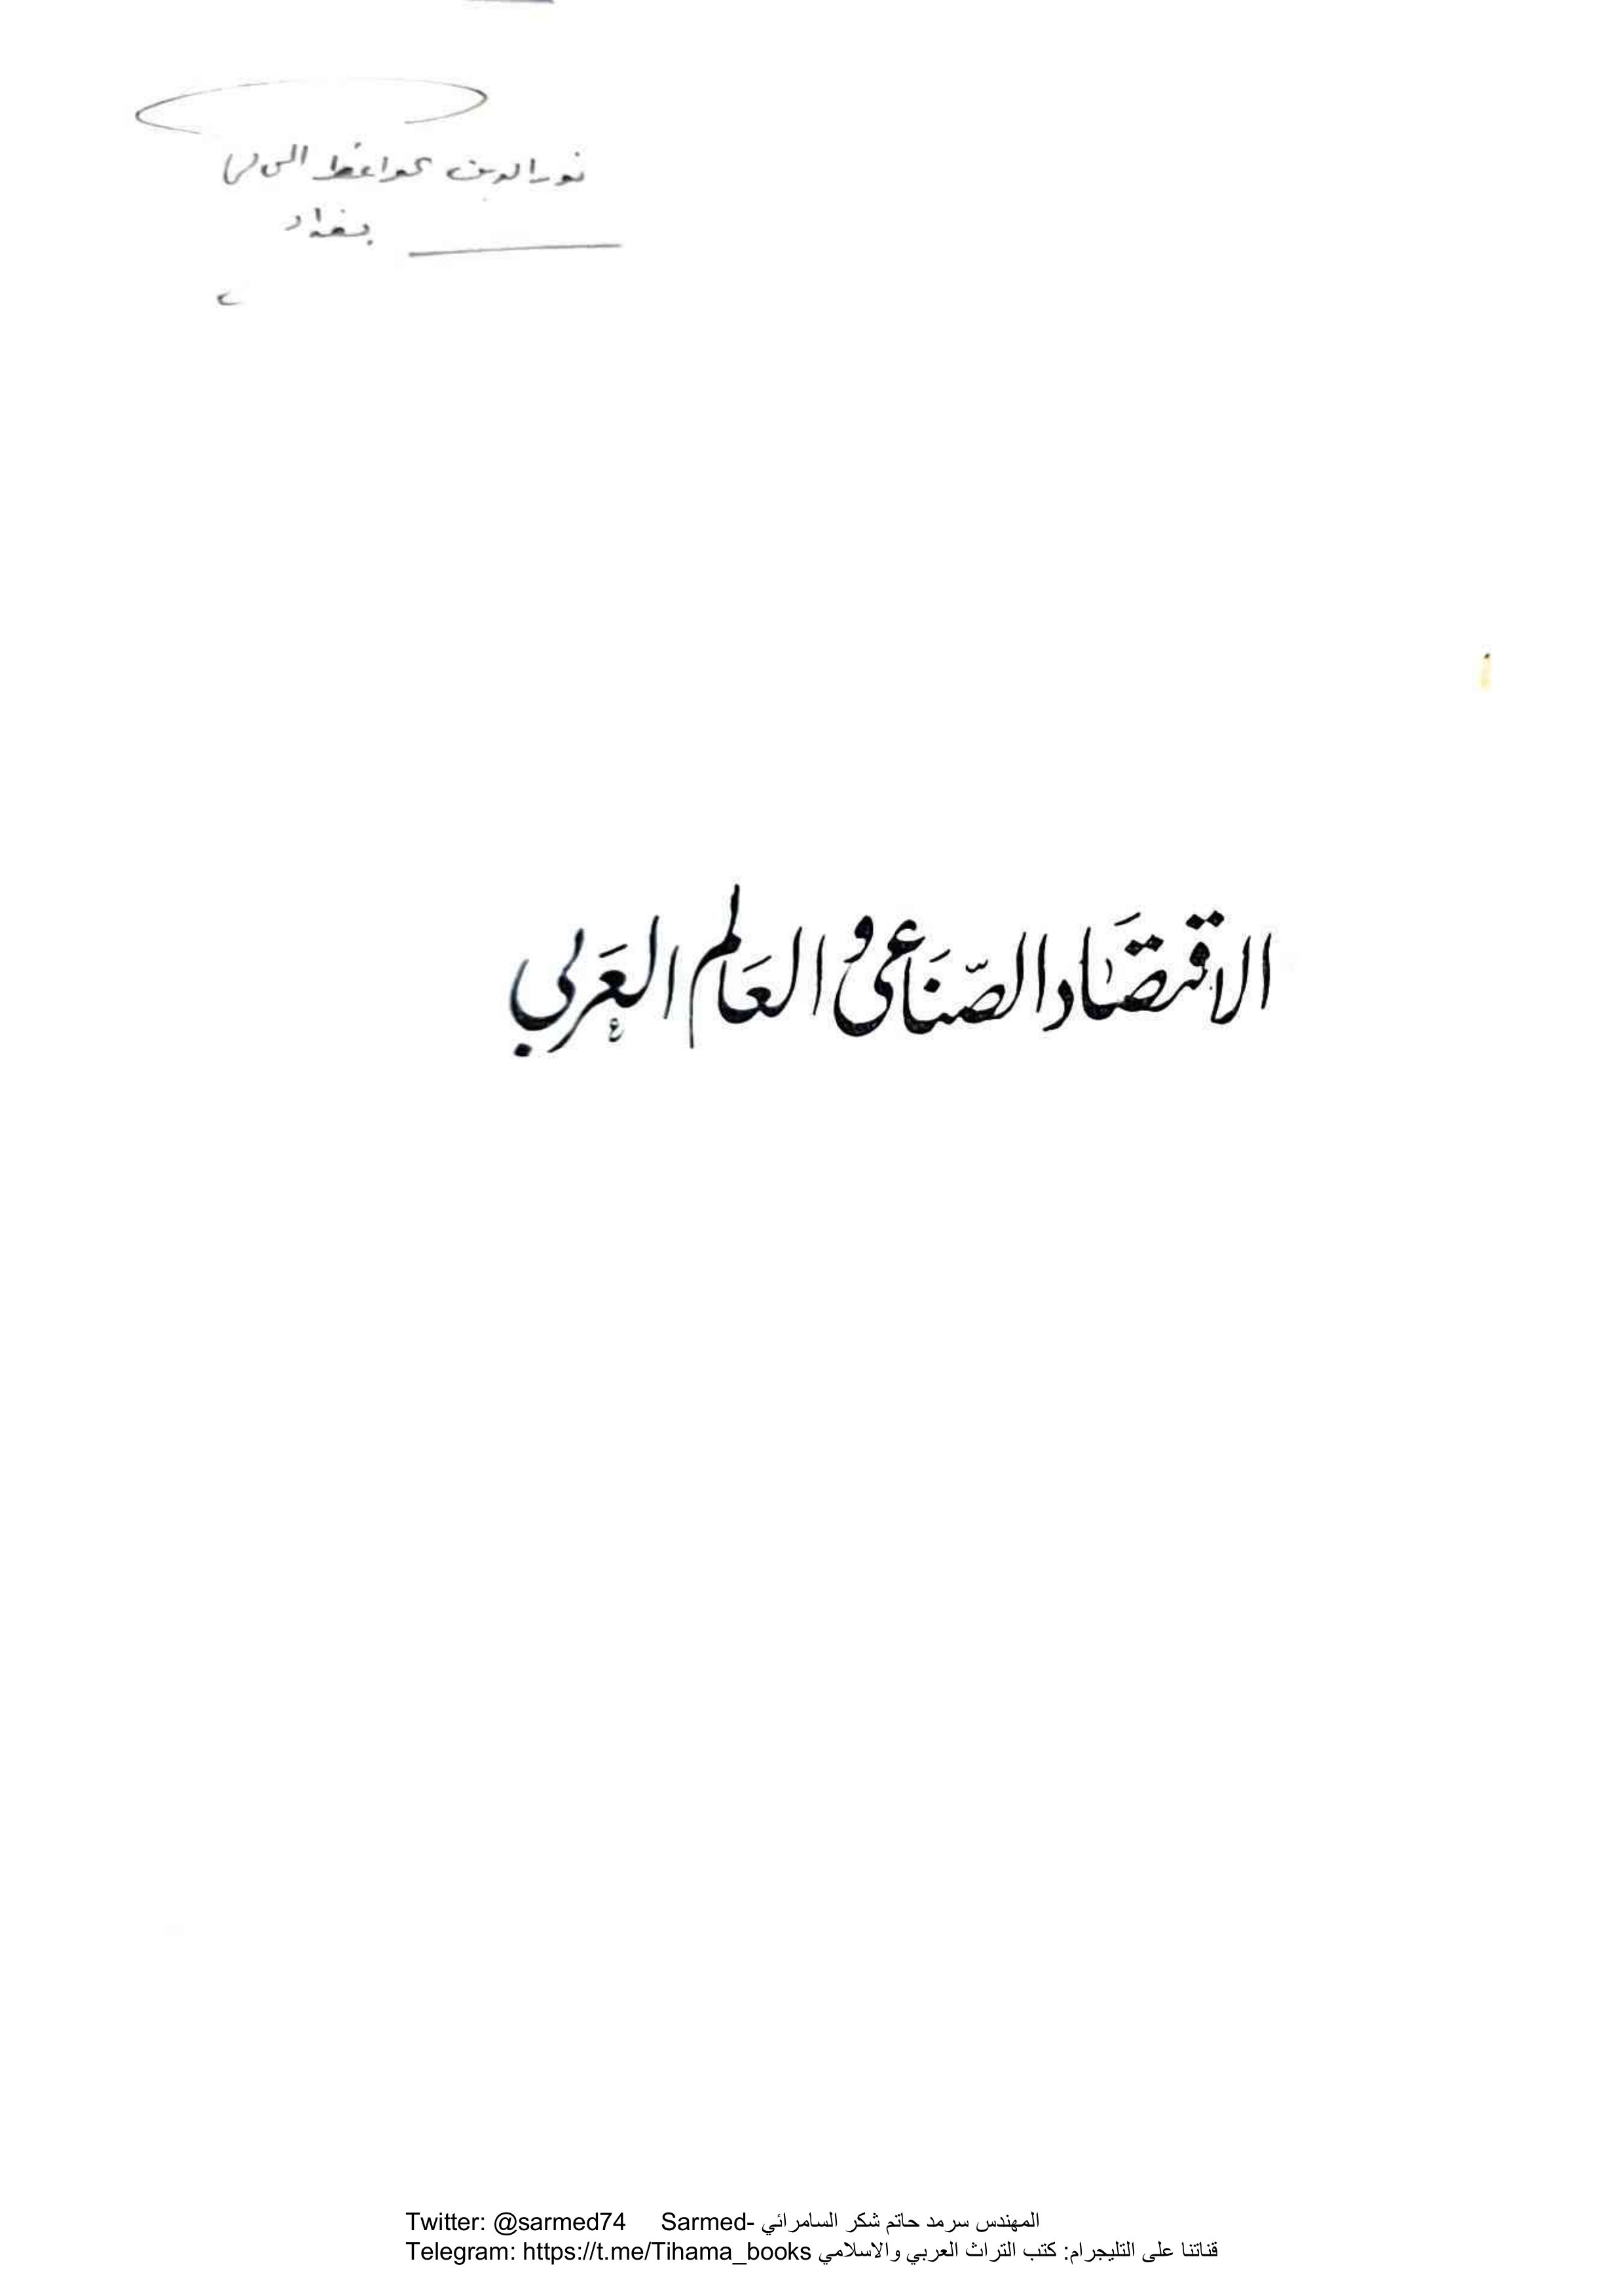 نور الدين الواعظ
بغداد
الاقتصاد الصناعي و العالم العربي
Twitter: @sarmed74 Sarmed- المهندس سرمد حاتم شكر السامرائي
Telegram: https://t.me/Tihama_books قناتنا على التليجرام: كتب التراث العربي والاسلامي